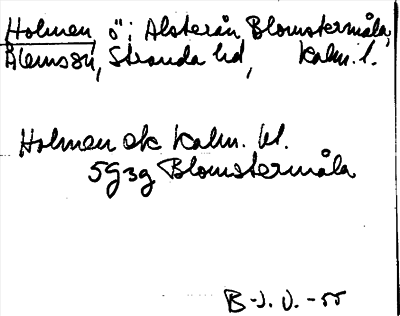 Holmen, ö i Alsterån, Blomstermåla,
Ålemssn, Stranda hd, Kalm. l.
Holmen ek Kalm. bl.
5g3g Blomstermåla
B-J. U. -55